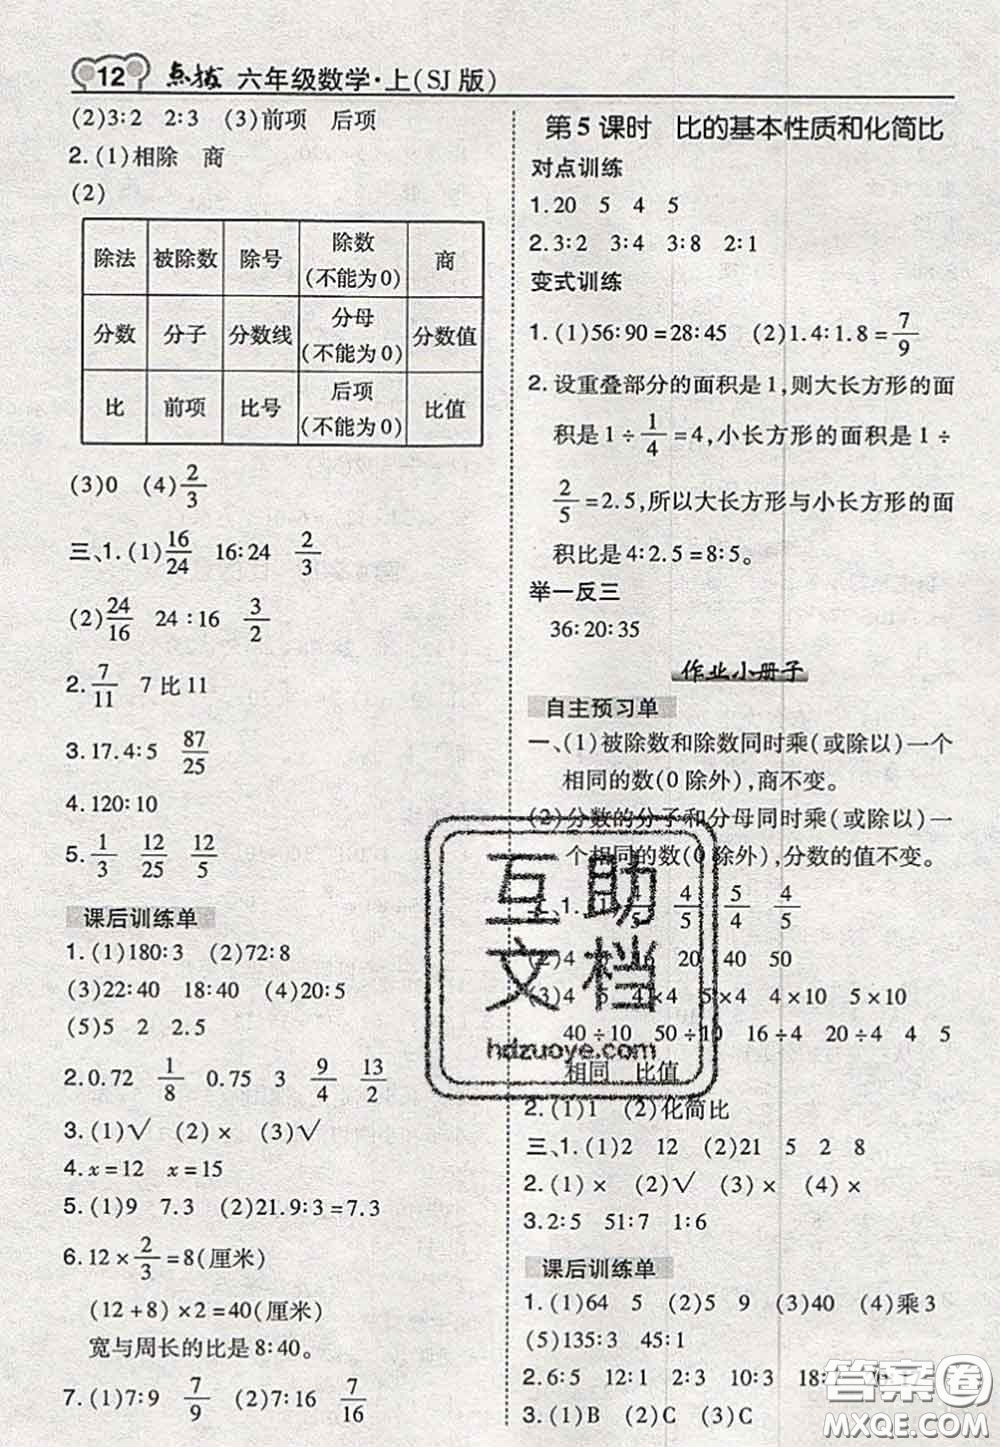 12 点拨 六年级数学·上(SJ版)
(2)3:2 2:3 (3)前项 后项
2.(1)相除 商
(2)
除法 被除数 除号 除数(不能为0) 商
分数 分子 分数线 分母(不能为0) 分数值
比 前项 比号 后项(不能为0) 比值
(3)0 (4)2/3
三、1.(1)16/24 16:24 2/3
(2)24/16 24:16 3/2
2.7/11 7比11
3.17.4:5 87/25
4.120:10
5.1/3 12/25 12/5
课后训练单
1.(1)180:3 (2)72:8
(3)22:40 18:40 (4)20:5
(5)5 2 2.5
2.0.72 1/8 0.75 3 9/4 13/2
3.(1)√ (2)× (3)√
4.x=12 x=15
5.(1)9 7.3 (2)21.9:3=7.3
6.12×2/3=8(厘米)
(12+8)×2=40(厘米)
宽与周长的比是8:40。
7.(1)7:9 7/9 (2)7:16 7/16
第5课时 比的基本性质和化简比
对点训练
1.20 5 4 5
2.3:2 3:4 3:8 2:1
变式训练
1.(1)56:90=28:45 (2)1.4:1.8=7/9
2.设重叠部分的面积是1,则大长方形的面
积是1÷1/4=4,小长方形的面积是1÷
2/5=2.5,所以大长方形与小长方形的面
积比是4:2.5=8:5。
举一反三
36:20:35
作业小册子
自主预习单
一、(1)被除数和除数同时乘(或除以)一个
相同的数(0除外),商不变。
(2)分数的分子和分母同时乘(或除以)一
个相同的数(0除外),分数的值不变。
1. 4/5 4/5 5/4 4/5
(2)4 5 16 20 40 50
(3)4 5 4×4 5×4 4×10 5×10
40÷10 50÷10 16÷4 20÷4 4 5
相同 比值
2.(1)1 (2)化简比
三、1.(1)2 12 (2)21 5 2 8
2.(1)× (2)√ (3)×
3.2:5 51:7 1:6
课后训练单
1.(1)64 5 (2)5 9 (3)40 (4)乘3
(5)135:3 45:1
2.6:5 12:1 2:1 10:1
3.(1)B (2)C (3)C
互助文档
hdzuoye.com
答案圈
MXQE.COM